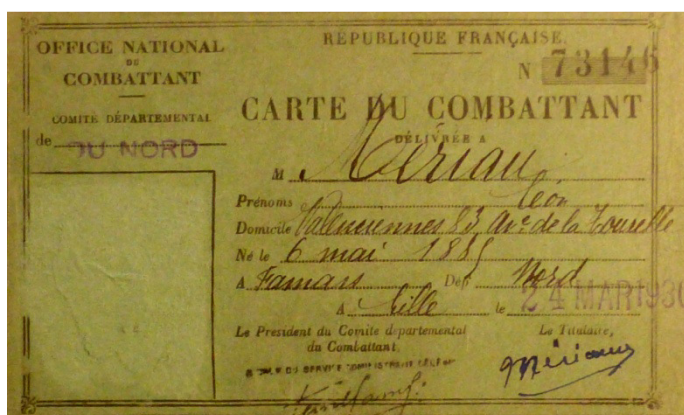 OFFICE NATIONAL
DU
COMBATTANT
COMITÉ DÉPARTEMENTAL
de DU NORD
RÉPUBLIQUE FRANÇAISE
N 73146
CARTE DU COMBATTANT
DÉLIVRÉE A
M Mériau
Prénoms Léon
Domicile Valenciennes 83, Av.e de la Tourelle
Né le 6 mai 1885
A Famars Dép Nord
A Lille le 24 MAR 1930
Le Président du Comité départemental
du Combattant,
Le Titulaire,
Mériau